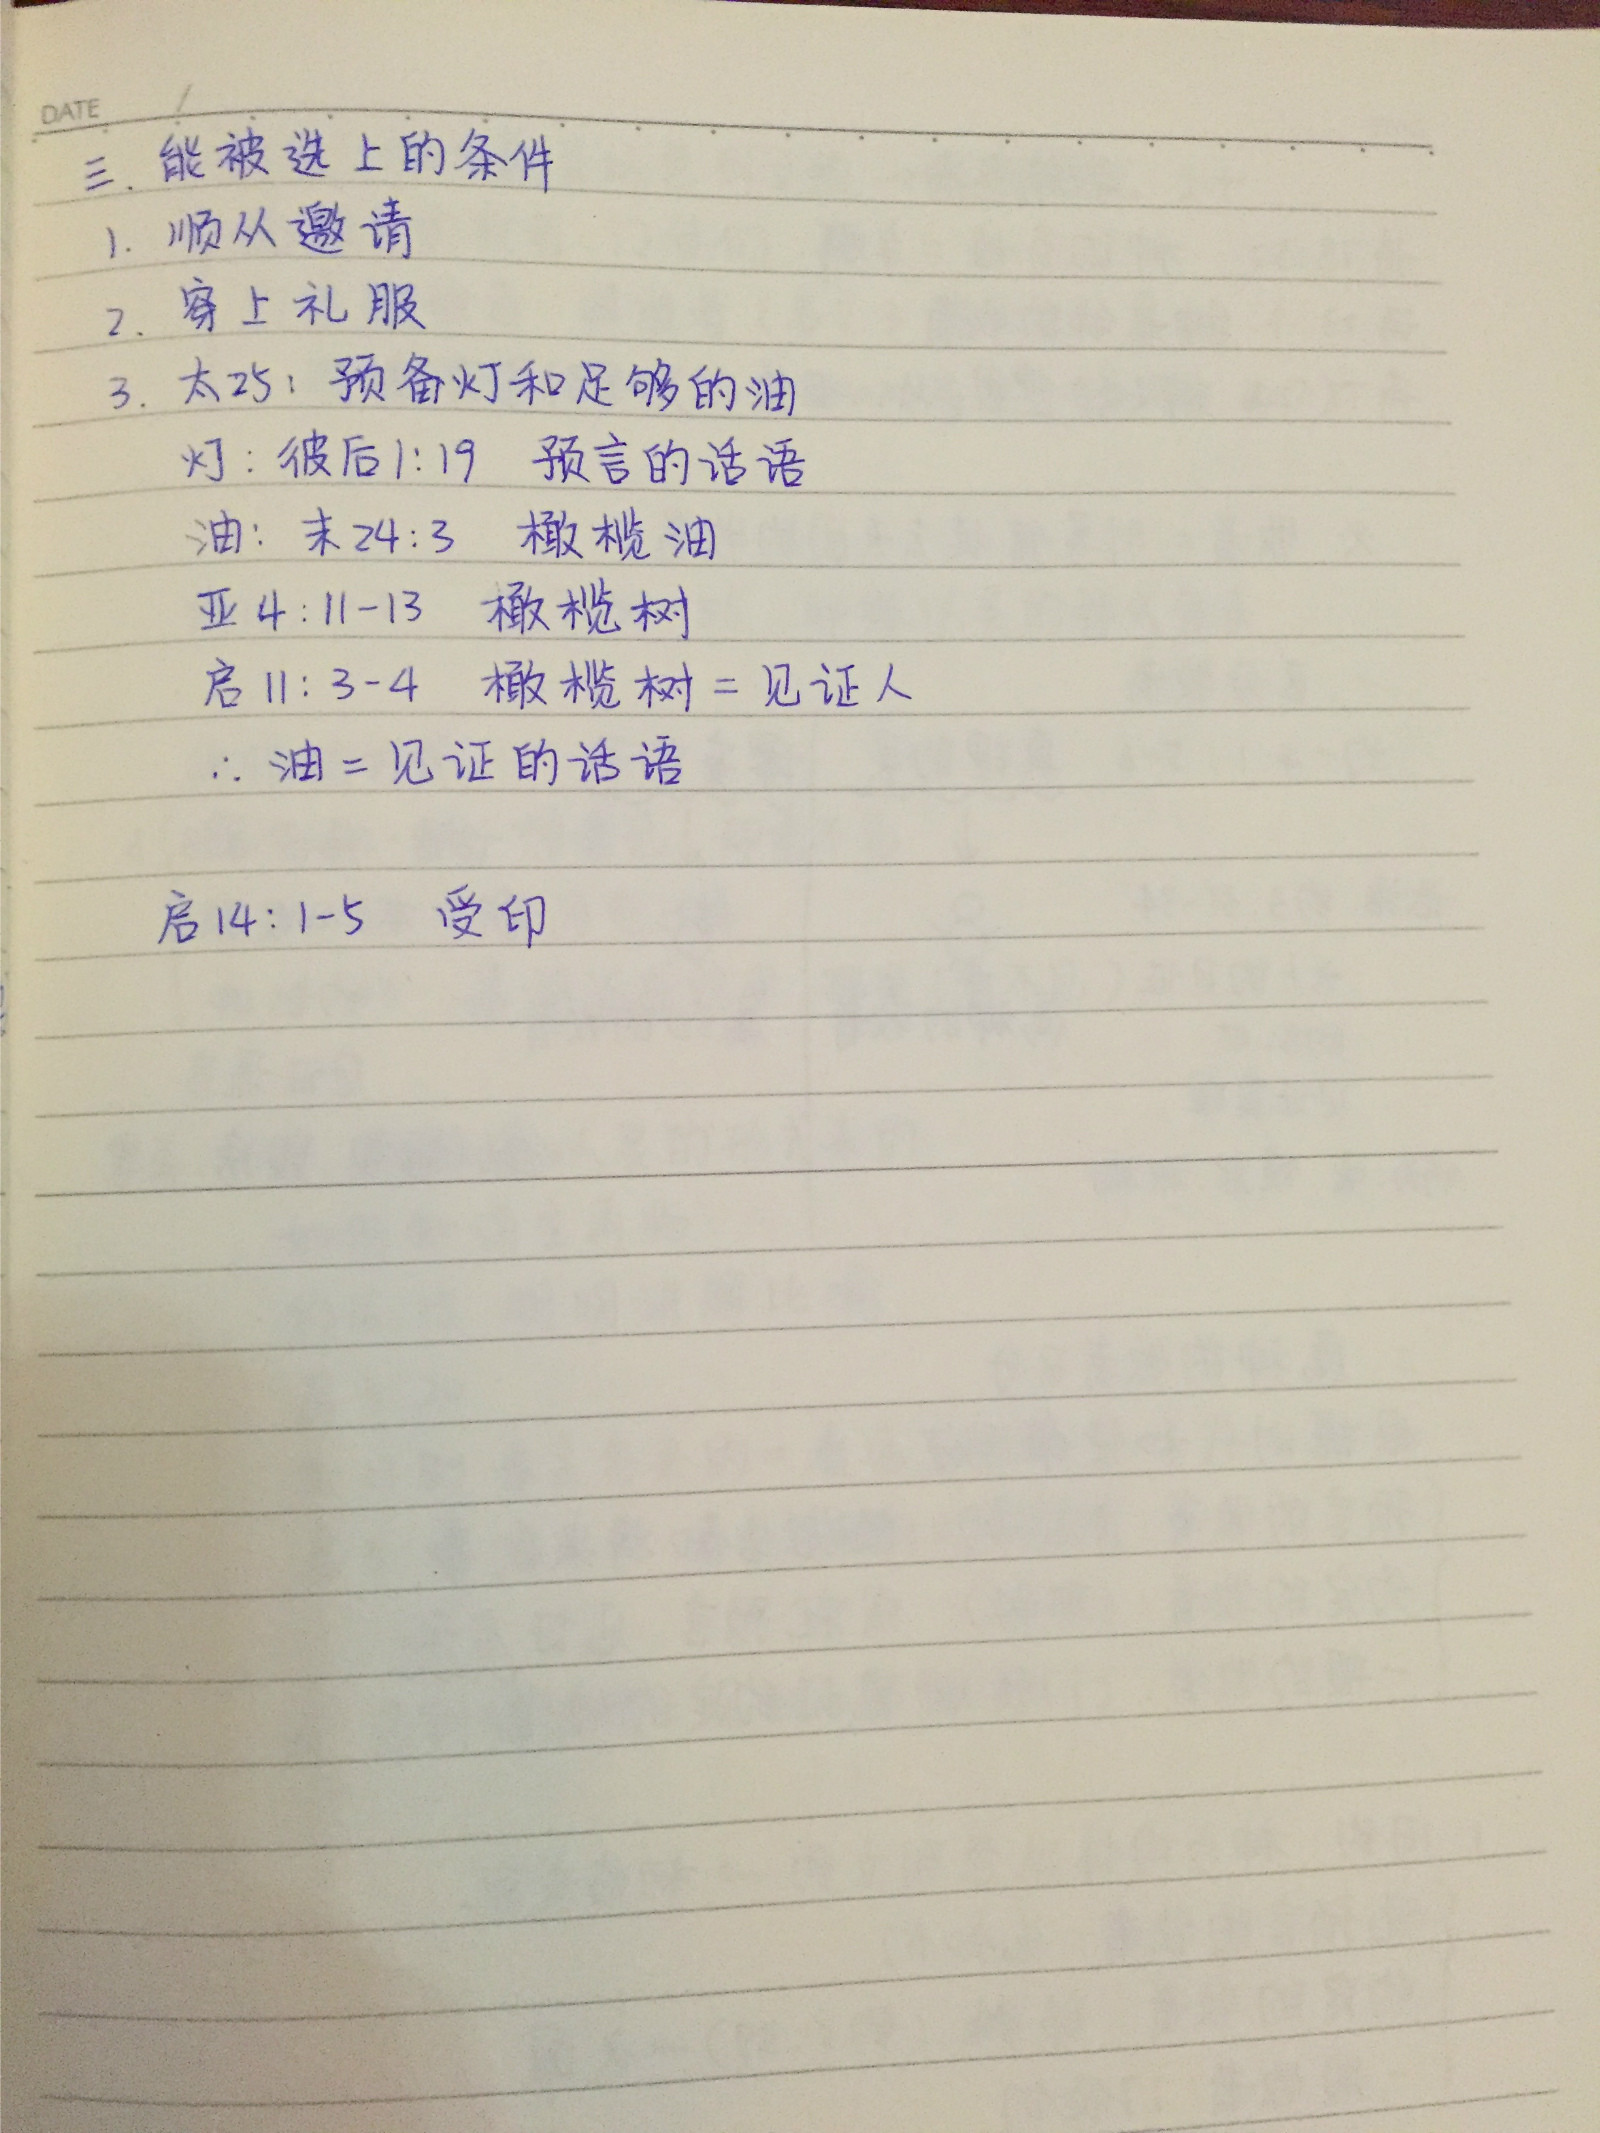 DATE /
三. 能被选上的条件
1. 顺从邀请
2. 穿上礼服
3. 太25: 预备灯和足够的油
灯: 彼后1:19 预言的话语
油: 未24:3 橄榄油
亚4:11-13 橄榄树
启11:3-4 橄榄树=见证人
∴ 油=见证的话语
启14:1-5 受印